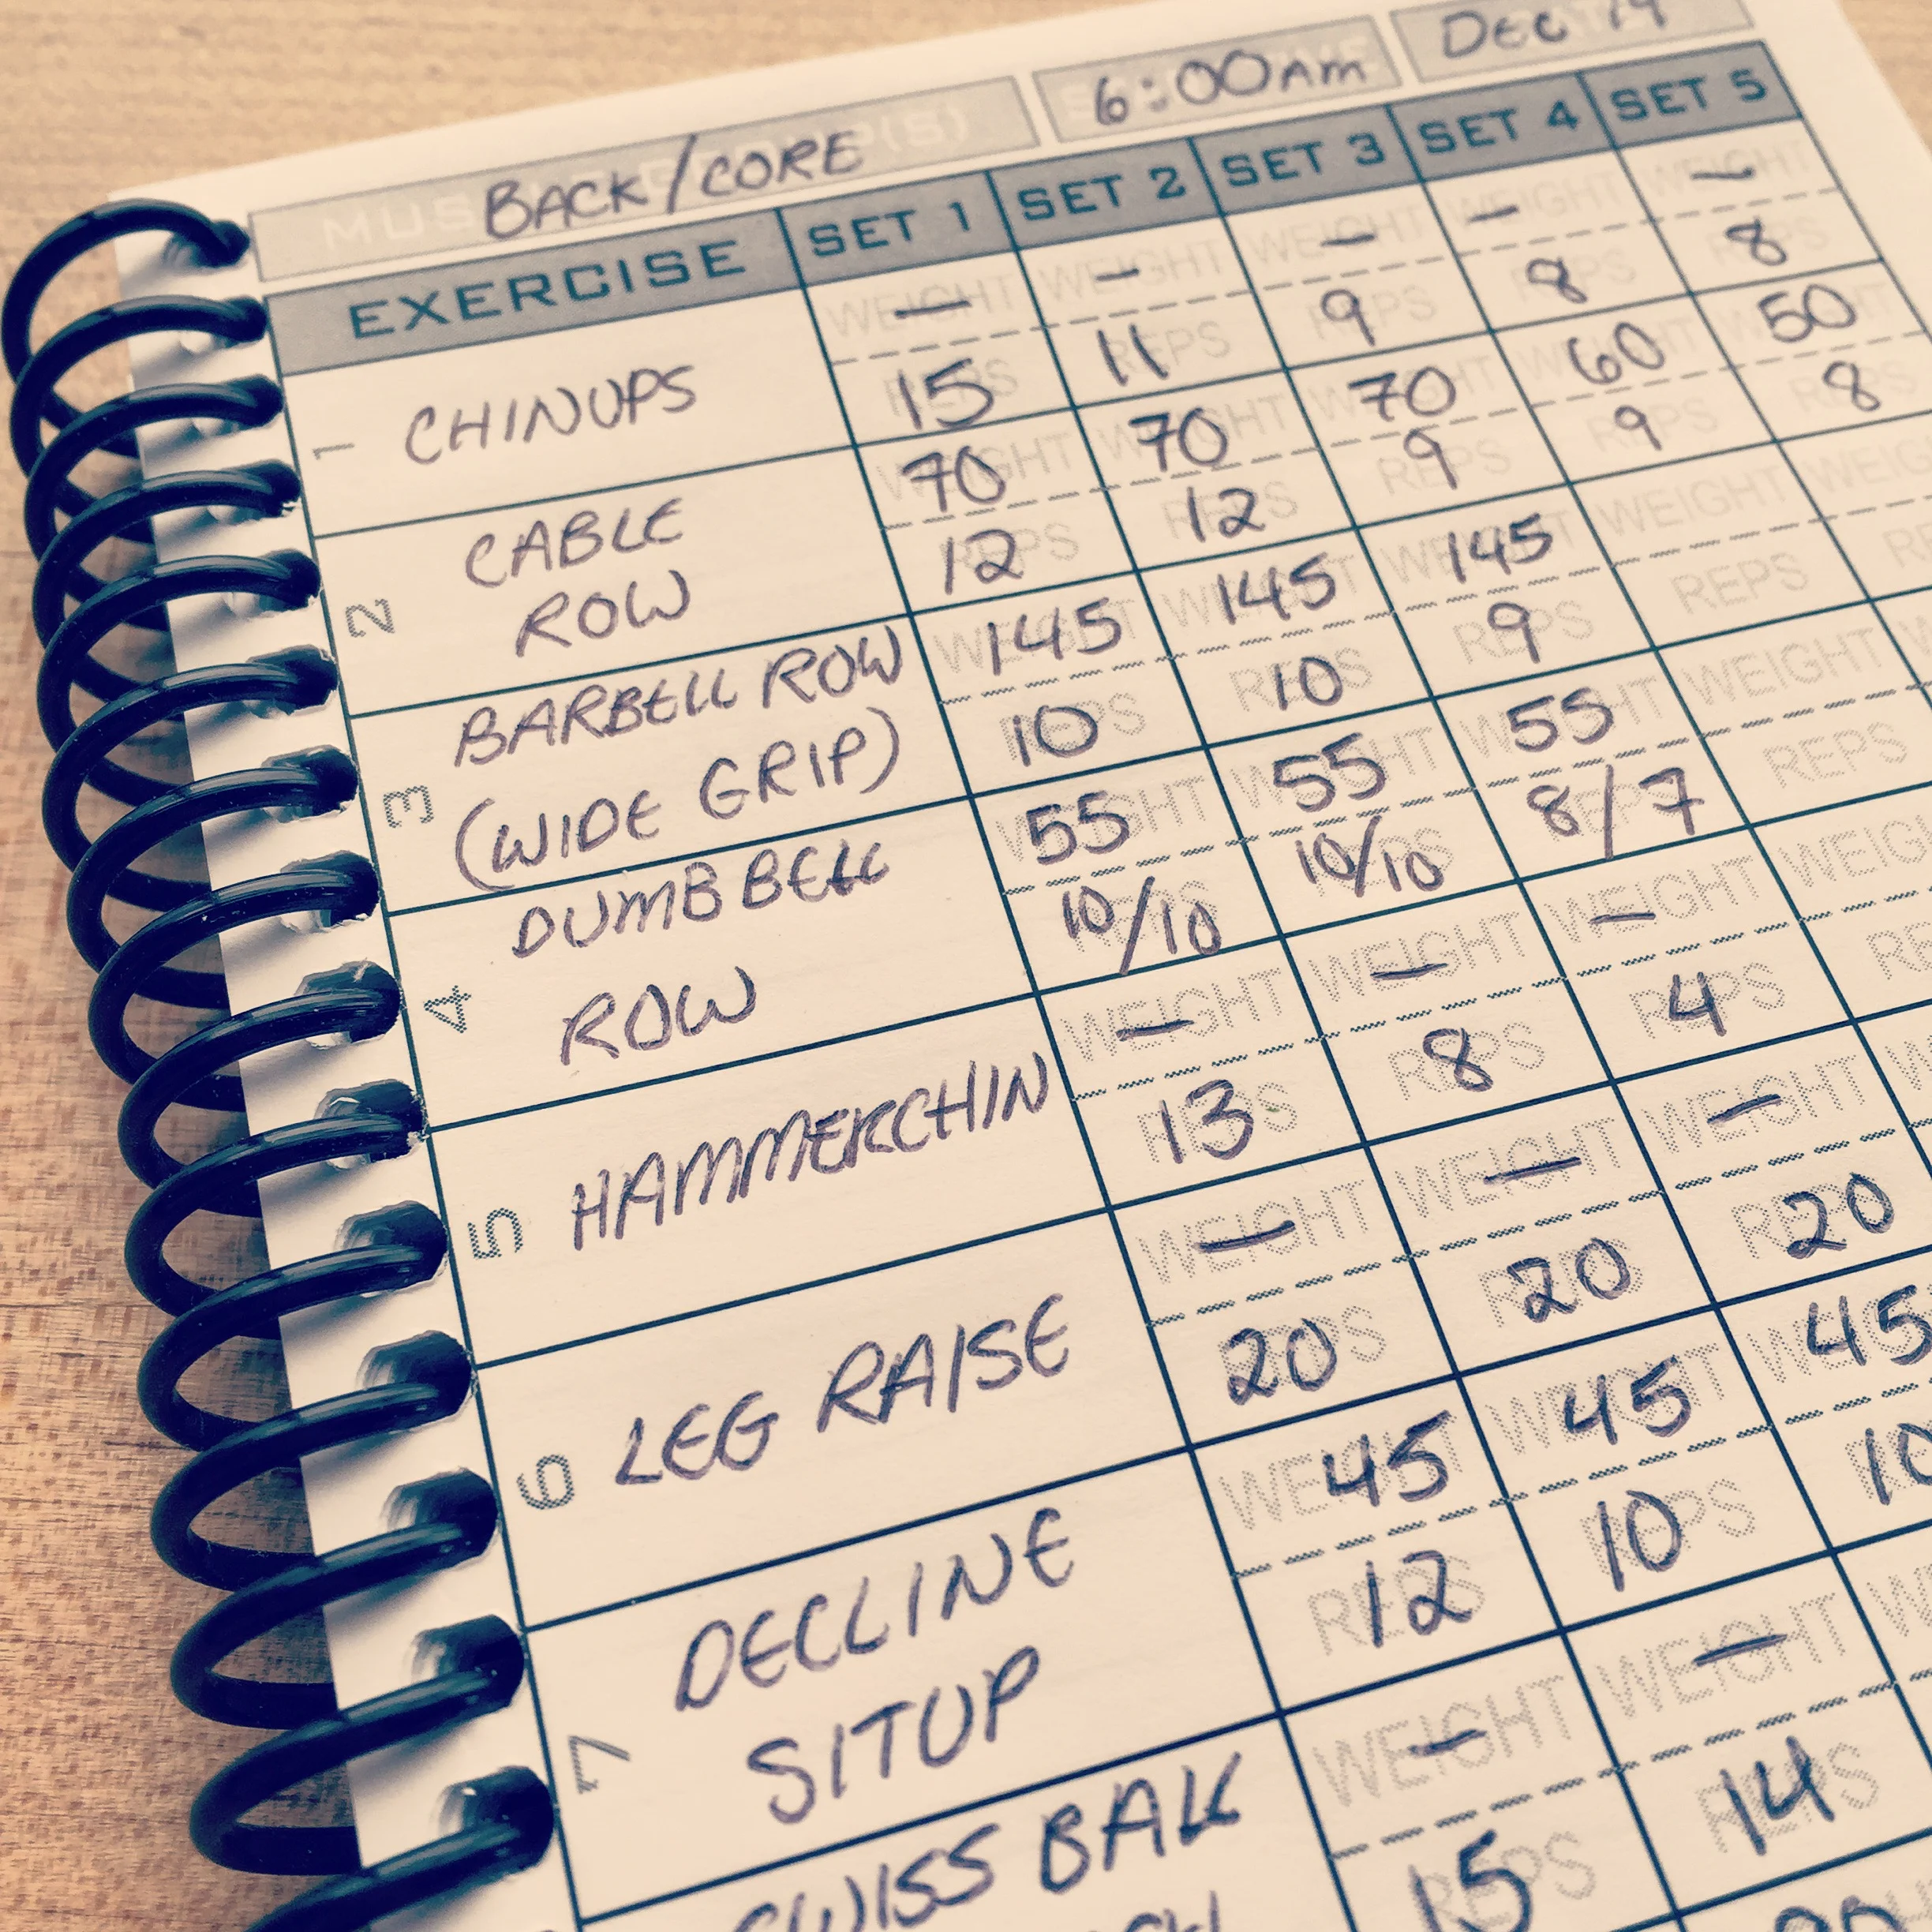 BACK/CORE 6:00AM DEC 19
EXERCISE SET 1 SET 2 SET 3 SET 4 SET 5
1 CHINUPS
WEIGHT — WEIGHT — WEIGHT — WEIGHT — WEIGHT —
REPS 15 REPS 11 REPS 9 REPS 8 REPS 8
2 CABLE ROW
WEIGHT 70 WEIGHT 70 WEIGHT 70 WEIGHT 60 WEIGHT 50
REPS 12 REPS 12 REPS 9 REPS 9 REPS 8
3 BARBELL ROW (WIDE GRIP)
WEIGHT 145 WEIGHT 145 WEIGHT 145 WEIGHT
REPS 10 REPS 10 REPS 9 REPS
4 DUMBBELL ROW
WEIGHT 55 WEIGHT 55 WEIGHT 55 WEIGHT
REPS 10/10 REPS 10/10 REPS 8/7 REPS
5 HAMMERCHIN
WEIGHT — WEIGHT — WEIGHT — WEIGHT
REPS 13 REPS 8 REPS 4
6 LEG RAISE
WEIGHT — WEIGHT — WEIGHT —
REPS 20 REPS 20 REPS 20
7 DECLINE SITUP
WEIGHT 45 WEIGHT 45 WEIGHT 45
REPS 12 REPS 10 10
SWISS BALL
WEIGHT — WEIGHT —
REPS 15 REPS 14